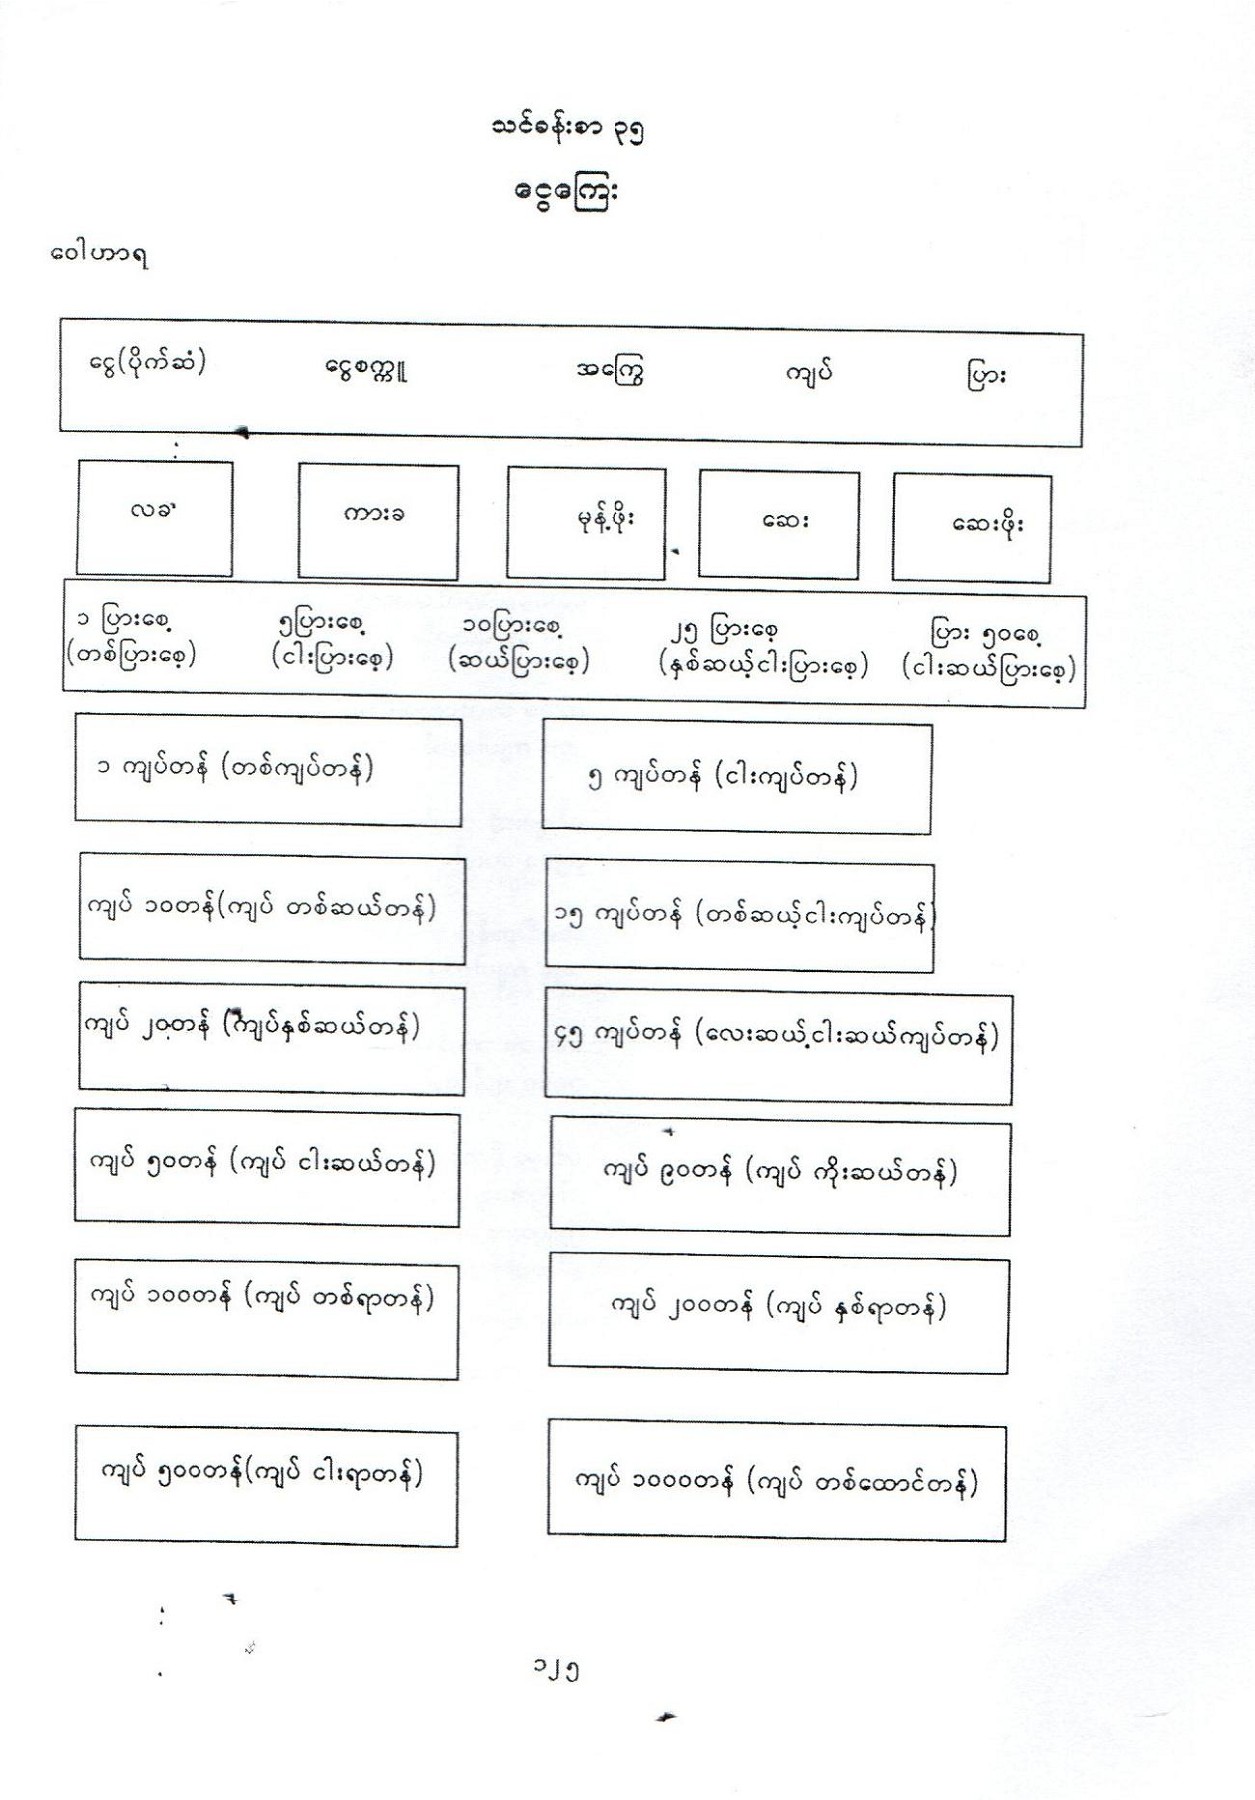 သင်ခန်းစာ ၃၅
ငွေကြေး
ဝေါဟာရ
ငွေ(ပိုက်ဆံ) ငွေစက္ကူ အကြွေ ကျပ် ပြား
လခ ကားခ မုန့်ဖိုး ဆေး ဆေးဖိုး
၁ ပြားစေ့ ၅ပြားစေ့ ၁၀ပြားစေ့ ၂၅ ပြားစေ့ ပြား ၅၀စေ့
(တစ်ပြားစေ့) (ငါးပြားစေ့) (ဆယ်ပြားစေ့) (နှစ်ဆယ့်ငါးပြားစေ့) (ငါးဆယ်ပြားစေ့)
၁ ကျပ်တန် (တစ်ကျပ်တန်) ၅ ကျပ်တန် (ငါးကျပ်တန်)
ကျပ် ၁၀တန်(ကျပ် တစ်ဆယ်တန်) ၁၅ ကျပ်တန် (တစ်ဆယ့်ငါးကျပ်တန်)
ကျပ် ၂၀တန် (ကျပ်နှစ်ဆယ်တန်) ၄၅ ကျပ်တန် (လေးဆယ့်ငါးဆယ်ကျပ်တန်)
ကျပ် ၅၀တန် (ကျပ် ငါးဆယ်တန်) ကျပ် ၉၀တန် (ကျပ် ကိုးဆယ်တန်)
ကျပ် ၁၀၀တန် (ကျပ် တစ်ရာတန်) ကျပ် ၂၀၀တန် (ကျပ် နှစ်ရာတန်)
ကျပ် ၅၀၀တန်(ကျပ် ငါးရာတန်) ကျပ် ၁၀၀၀တန် (ကျပ် တစ်ထောင်တန်)
၁၂၅